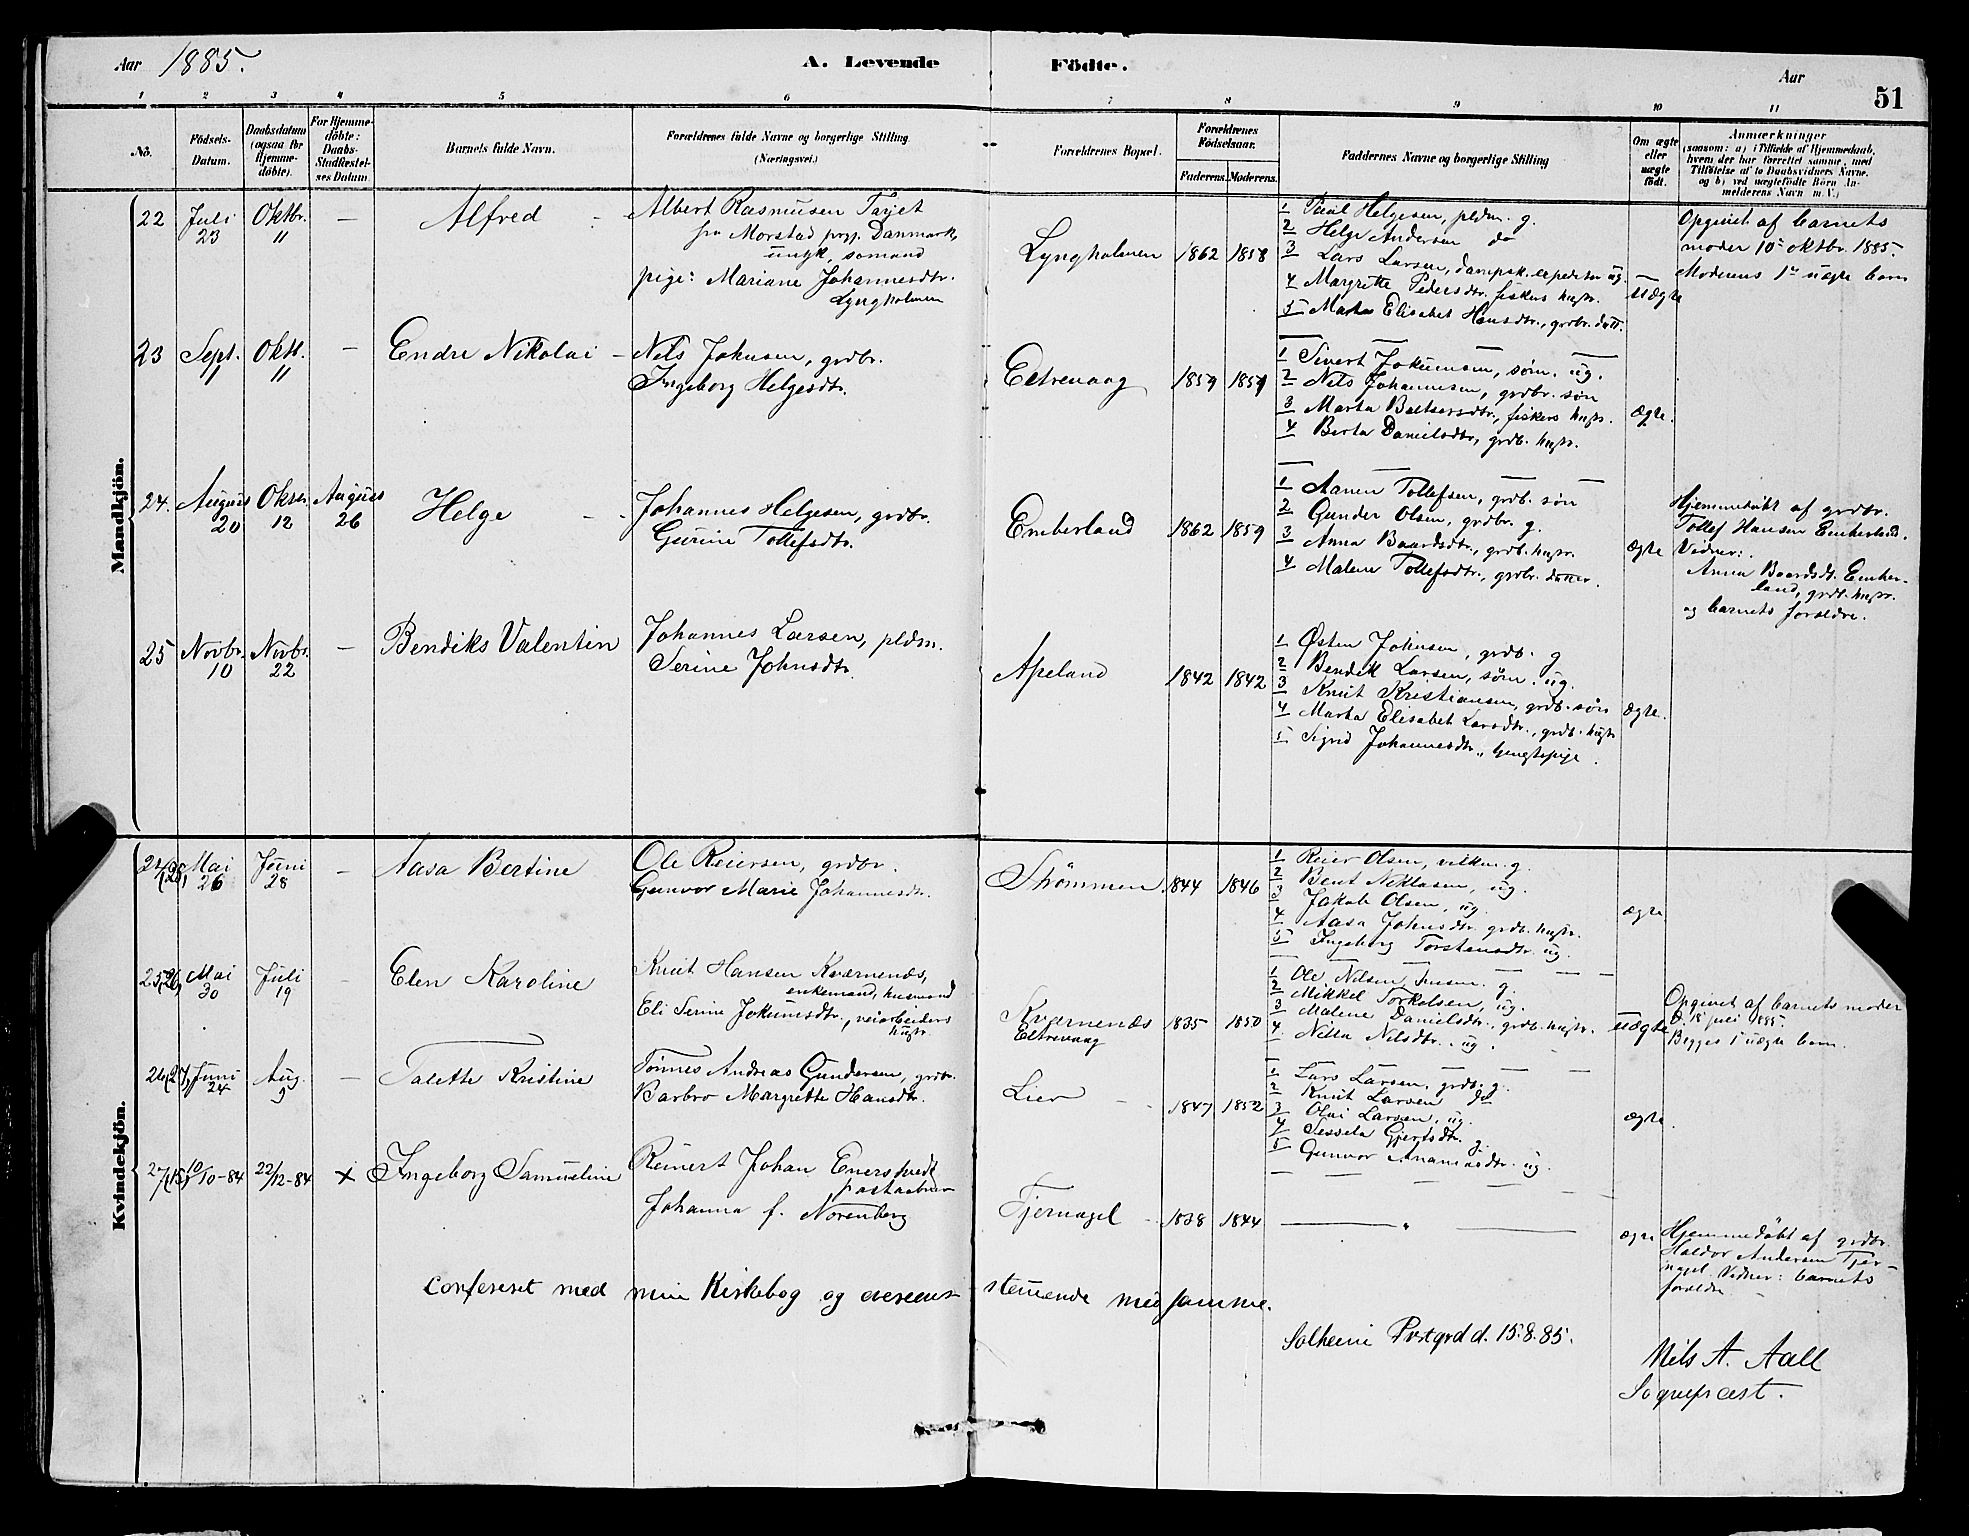 Aar 1885. A. Levende Födte. Aar
51
1 2 3 4 5 6 7 8 9 10 11
No.
Födsels-Datum.
Daabsdatum (ogsaa for Hjemmedöbte).
For Hjemmedöbte: Daabs-Stadfæstelses Datum.
Barnets fulde Navn.
Forældrenes fulde Navne og borgerlige Stilling (Næringsvei.)
Forældrenes Bopæl.
Forældrenes Födselsaar.
Faderens. Moderens.
Faddernes Navne og borgerlige Stilling
Om ægte eller uægte födt.
Anmærkninger
(saasom: a) i Tilfælde af Hjemmedaab,
hvem der har forrettet samme, med
Tilföielse af to Daabsvidners Navne,
og b) ved uægtefödte Börn An-
melderens Navn m. V.)
Mandkjön.
22 Juli 23 Oktbr. 11 — Alfred
Albert Rasmusen
fra Morstad prgj. Danmark,
ungk, sømand
pige: Mariane Johannesdtr.
Lyngholmen
Lyngholmen 1862 1858
1 Paul Helgesen, pldm. g.
2 Helge Andersen do
3 Lars Larsen, dampsk. expeditør ug.
4 Margrette Pedersdtr. fiskers hustr.
5 Marta Elisabet Hansdtr., grdbr. datt.
uægte
Opgivet af barnets
moder 10de oktbr. 1885.
Moderens 1ste uægte barn
23 Sept. 11 Oktb. 11 — Endre Nikolai
Nels Johnsen, grdbr.
Ingeborg Helgesdtr.
Eltrevaag 1859 1859
1 Sivert Jokumsen, søm. ug.
2 Nels Johannesen, grdbr. søn
3 Marta Baltsersdtr., fiskers hustr.
4 Berta Danielsdtr., grdb. hustr.
ægte.
24. August 20 Oktbr. 12 August 26 Helge
Johannes Helgesen, grdbr.
Gurine Tollefsdtr.
Emberland 1862 1859
1 Aanen Tollefsen, grdb. søn
2 Gunder Olsen, grdbr. g.
3 Anna Baardsdtr., grdb. hustr.
4 Malene Tollefsdtr., grdbr. datter.
ægte
Hjemmedøbt af grdbr.
Tollef Hansen Emberland.
Vidner:
Anna Baardsdt. Ember-
land, grdb. hustr.
og barnets forældre.
25 Novbr. 10 Novbr. 22 — Bendiks Valentin
Johannes Larsen, pldsm.
Serine Johnsdtr.
Apeland 1842 1842
1 Østen Johnsen, grdb. g
2 Bendik Larsen, søm. ug.
3 Knut Kristiansen, grdb. søn
4 Marta Elisabet Larsdtr., grdb. hustr
5 Sigrid Johannesdtr.,
ægte.
Kvindekjön.
24(25) Mai 26 Juni 28 — Aasa Bertine
Ole Reiersen, grdbr.
Gunvor Marie Johannesdtr.
Strømmen 1844 1846
1 Reier Olsen, g.
2 Bent Niklasen, ug.
3 Jakob Olsen, ug.
4 Aasa Johnsdtr. grdb. hustr.
5 Ingeborg Torstensdtr. ug.
ægte
25(26) Mai 30 Juli 19 Elen Karoline
Knut Hansen Kværnenæs,
enkemand, husmand
Eli Serine Jokumsdtr., veiarbeiders
hustr.
Kværnenæs
Eltrevaag
1835 1850
1 Ole Nilsen, husm. g.
2 Mikkel Torkelsen, ug.
3 Malene Danielsdtr., grdb. hustr.
4. Nilla Nilsdtr. ug.
uægte
Opgivet af barnets moder
d. 18 juli 1885.
Begges 1 uægte barn.
26(27) Juni 24 Aug. 9 — Talette Kristine
Tønnes Andreas Gundersen, grdbr.
Barbro Margrette Hansdtr.
Lier 1847 1852
1 Lars Larsen, grdb. g.
2 Knut Larsen do
3 Olai Larsen, ug.
4 Sessela Gjertsdtr. g.
5 Gunvor Ananiasdtr. ug.
ægte.
27(15) 10/10-84 22/12-84 x Ingeborg Samueline
Reinert Johan Enerstvedt
postaabner
Johanna f. Norenberg
Tjernagel 1838 1844
— " —
ægte
Hjemmedøbt af grdbr.
Haldor Andersen Tjer-
nagel. Vidner: barnets
forældre
conferert med min Kirkebog og overens- stemmende med samme.
Solheim Prstgrd d. 15.8.85.
Nils A. Aall
Sognepræst.